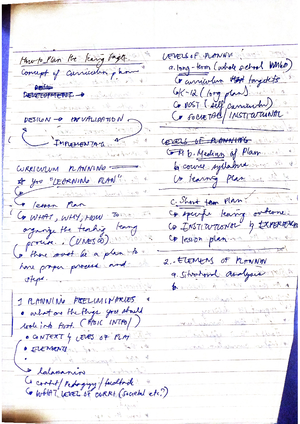 How to Plan the
Concept of curriculum plan
DEVELOPMENT →
DESIGN → EVALUATION
IMPLEMENTA
CURRICULUM PLANNING
for "LEARNING PLAN"
lesson plan
WHAT, WHY, HOW TO
organize the teaching
process. (UNESCO)
there must be a plan to
have proper process and
steps.
1 PLANNING PRELIMINARIES
what are the things you should
look into first. (BASIC INFO)
CONTEXT & LEVELS OF PLA
ELEMENTS
content/Pedagogy/feedback
WHAT LEVEL OF CURRI (societal etc.?)
LEVELS OF PLANNIN
a. long-term (whole school
curriculum targets
K-12 (long plan)
SOCIETAL/INSTITUTIONAL
LEVELS OF PLANNING
b. Medium of Plan
course syllabus
learning plan
c. Short term plan
specific learning outcome
INSTITUTIONAL & EXPERIENCE
lesson plan
2. ELEMENTS OF PLANNIN
a. situational analysis
b.